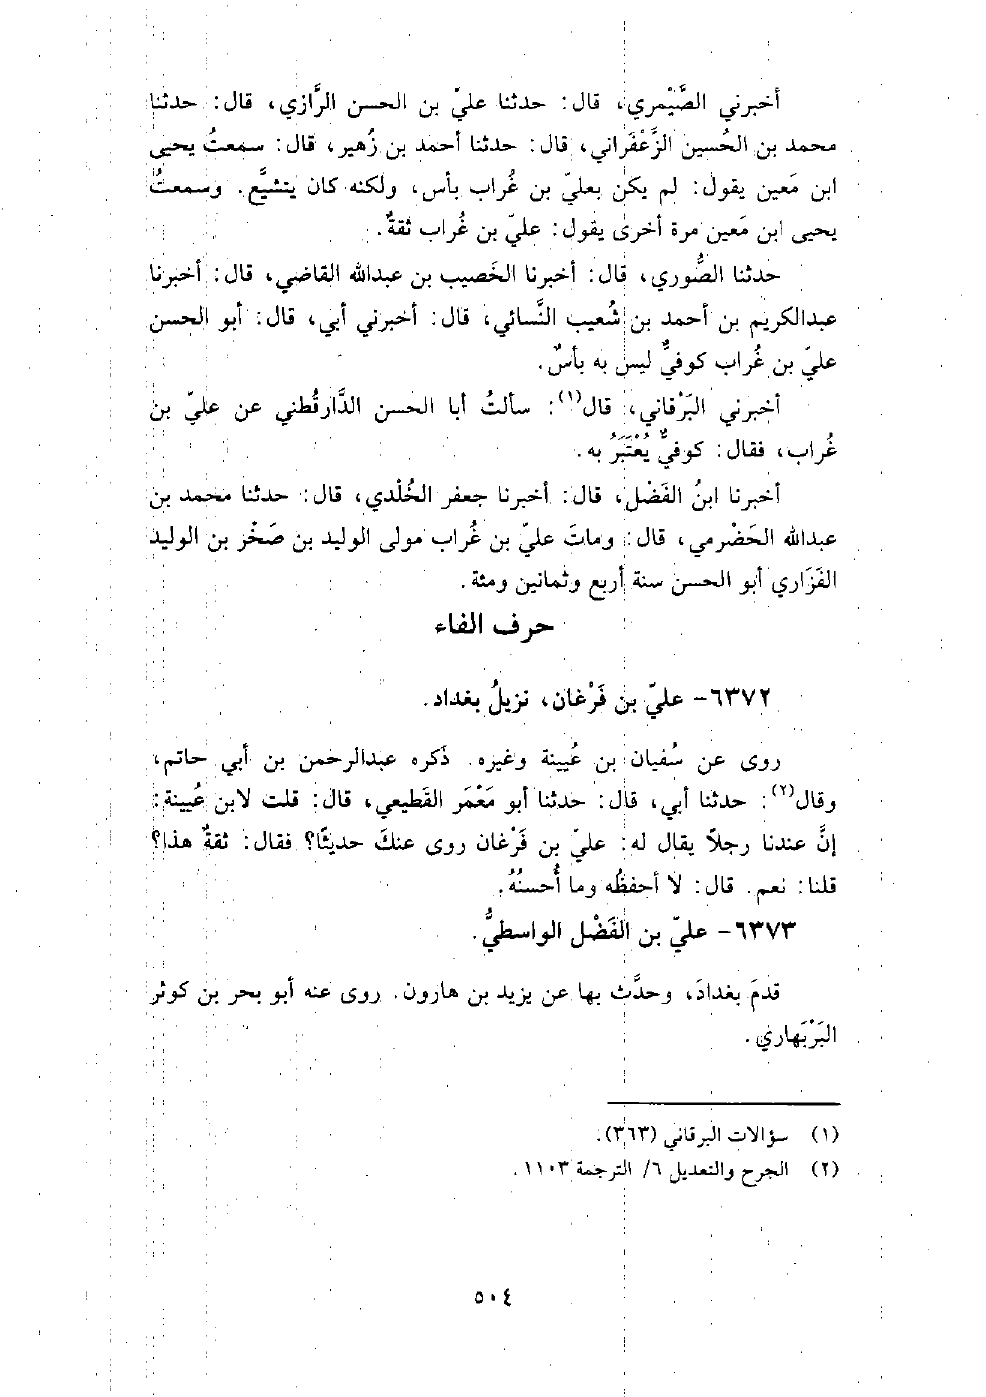 أخبرني الصَّيْمري، قال: حدثنا عليّ بن الحسن الرَّازي، قال: حدثنا
محمد بن الحُسين الزَّعْفَراني، قال: حدثنا أحمد بن زُهير، قال: سمعتُ يحيى
ابن مَعين يقول: لم يكن بعليّ بن غُراب بأس، ولكنه كان يتشيَّع. وسمعتُ
يحيى ابن مَعين مرة أخرى يقول: عليّ بن غُراب ثقةٌ.
حدثنا الصُّوري، قال: أخبرنا الخَصيب بن عبدالله القاضي، قال: أخبرنا
عبدالكريم بن أحمد بن شُعيب النَّسائي، قال: أخبرني أبي، قال: أبو الحسن
عليّ بن غُراب كوفيٌّ ليس به بأسٌ.
أخبرني البَرْقاني، قال(١): سألتُ أبا الحسن الدَّارقُطني عن عليّ بن
غُراب، فقال: كوفيٌّ يُعْتَبَرُ به.
أخبرنا ابنُ الفَضْل، قال: أخبرنا جعفر الخُلْدي، قال: حدثنا محمد بن
عبدالله الحَضْرمي، قال: وماتَ عليّ بن غُراب مولى الوليد بن صَخْر بن الوليد
الفَزَاري أبو الحسن سنة أربع وثمانين ومئة.
حرف الفاء
٦٣٧٢- عليّ بن فَرْغان، نزيلُ بغداد.
روى عن سُفيان بن عُيينة وغيره. ذكره عبدالرحمن بن أبي حاتم،
وقال(٢): حدثنا أبي، قال: حدثنا أبو مَعْمَر القَطيعي، قال: قلت لابن عُيينة:
إنَّ عندنا رجلاً يقال له: عليّ بن فَرْغان روى عنكَ حديثًا؟ فقال: ثقةٌ هذا؟
قلنا: نعم. قال: لا أحفظُه وما أُحسنُهُ.
٦٣٧٣- عليّ بن الفَضْل الواسطيُّ.
قدمَ بغدادَ، وحدَّث بها عن يزيد بن هارون. روى عنه أبو بحر بن كوثر
البَرْبَهاري.
(١) سؤالات البرقاني (٣٦٣).
(٢) الجرح والتعديل ٦/ الترجمة ١١٠٣.
٥٠٤